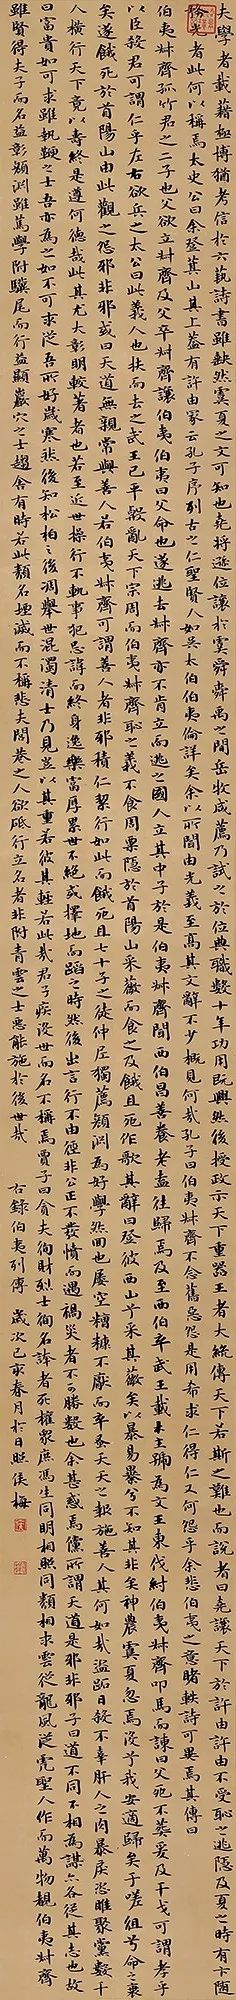 夫學者載籍極博猶考信於六藝詩書雖缺然虞夏之文可知也堯將遜位讓於虞舜舜禹之間岳牧咸薦乃試之於位典職數十年功用既興然後授政示天下重器王者大統傳天下若斯之難也而說者曰堯讓天下於許由許由不受恥之逃隱及夏之時有卞隨
務光者此何以稱焉太史公曰余登箕山其上蓋有許由冢云孔子序列古之仁聖賢人如吳太伯伯夷倫詳矣余以所聞由光義至高其文辭不少概見何哉孔子曰伯夷叔齊不念舊惡怨是用希求仁得仁又何怨乎余悲伯夷之意睹軼詩可異焉其傳曰
伯夷叔齊孤竹君之二子也父欲立叔齊及父卒叔齊讓伯夷伯夷曰父命也遂逃去叔齊亦不肯立而逃之國人立其中子於是伯夷叔齊聞西伯昌善養老盍往歸焉及至西伯卒武王載木主號為文王東伐紂伯夷叔齊叩馬而諫曰父死不葬爰及干戈可謂孝乎
以臣弒君可謂仁乎左右欲兵之太公曰此義人也扶而去之武王已平殷亂天下宗周而伯夷叔齊恥之義不食周粟隱於首陽山采薇而食之及餓且死作歌其辭曰登彼西山兮采其薇矣以暴易暴兮不知其非矣神農虞夏忽焉沒兮我安適歸矣于嗟徂兮命之衰
矣遂餓死於首陽山由此觀之怨邪非邪或曰天道無親常與善人若伯夷叔齊可謂善人者非邪積仁絜行如此而餓死且七十子之徒仲尼獨薦顏淵為好學然回也屢空糟糠不厭而卒蚤夭天之報施善人其何如哉盜跖日殺不辜肝人之肉暴戾恣睢聚黨數千
人橫行天下竟以壽終是遵何德哉此其尤大彰明較著者也若至近世操行不軌事犯忌諱而終身逸樂富厚累世不絕或擇地而蹈之時然後出言行不由徑非公正不發憤而遇禍災者不可勝數也余甚惑焉儻所謂天道是邪非邪子曰道不同不相為謀亦各從其志也故
曰富貴如可求雖執鞭之士吾亦為之如不可求從吾所好歲寒然後知松柏之後凋舉世混濁清士乃見豈以其重若彼其輕若此哉君子疾沒世而名不稱焉賈子曰貪夫徇財烈士徇名夸者死權眾庶馮生同明相照同類相求雲從龍風從虎聖人作而萬物覩伯夷叔齊
雖賢得夫子而名益彰顏淵雖篤學附驥尾而行益顯巖穴之士趨舍有時若此類名堙滅而不稱悲夫閭巷之人欲砥行立名者非附青雲之士惡能施於後世哉 右錄伯夷列傳 歲次己亥春月於日照侯梅